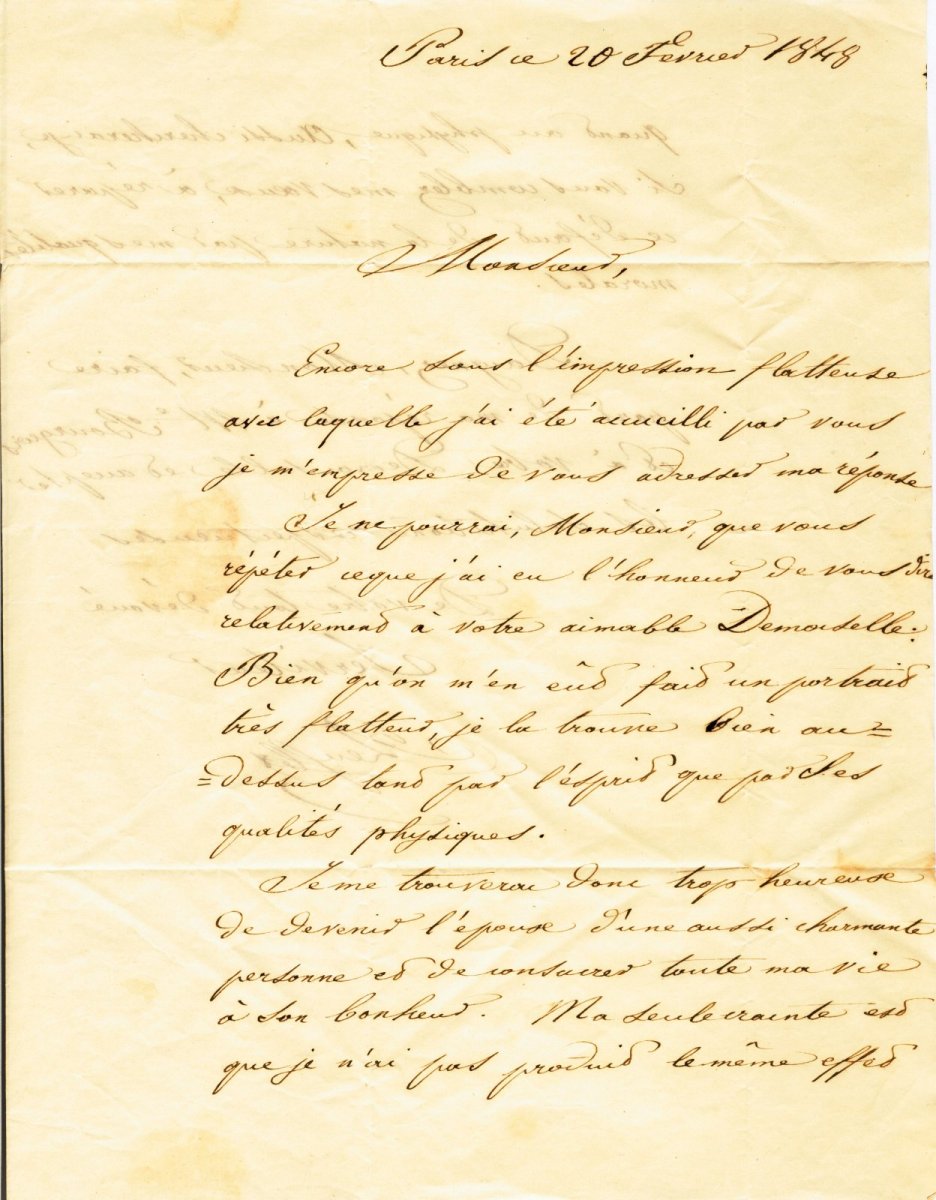 Paris ce 20 Fevrier 1848
Monsieur,
Encore sous l'impression flatteuse
avec laquelle j'ai été accueilli par vous
je m'empresse de vous adresser ma réponse
Je ne pourrai, Monsieur, que vous
répéter ce que j'ai eu l'honneur de vous dire
relativement à votre aimable Demoiselle.
Bien qu'on m'en eût fait un portrait
très flatteur, je la trouve bien au=
=dessus tant par l'ésprit que par ses
qualités physiques.
Je me trouverai donc trop heureuse
de devenir l'épouse d'une aussi charmante
personne et de consacrer toute ma vie
à son bonheur. Ma seule crainte est
que je n'ai pas produit le même effet